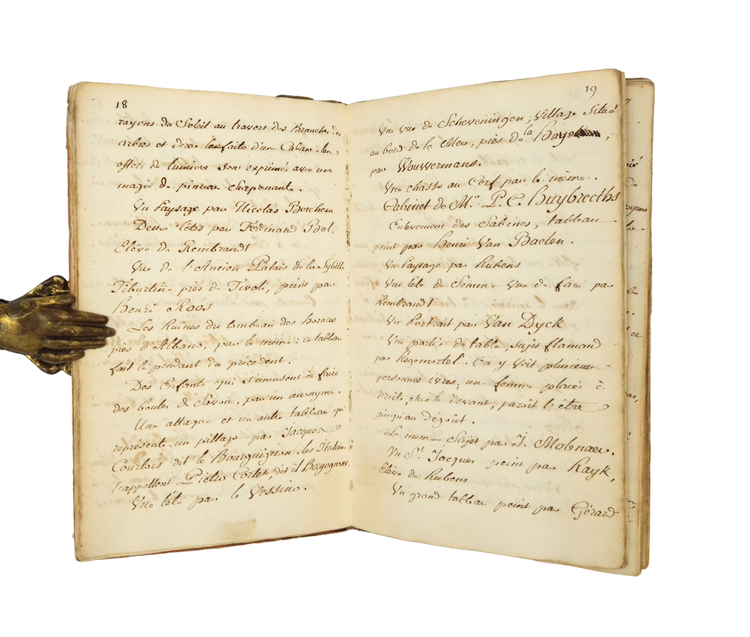 18
rayons du Soleil au travers des Branches des
arbres et dans
effets de lumiere sont exprimés avec une
magie de pinceau Surprenante.
Un Paysage par Nicolas Berchem
Deux têtes par Ferdinand Bol,
Elève de Rembrandt
Vue de l'Ancien Palais de la Sybille
Tiburtine près de Tivoli, peint par
Henri Roos
Les Ruines du tombeau des horaces
près d'Albano, par le même : ce tableau
fait le pendant du précédent.
Des Enfants qui s'amusent à faire
des boules de Savon, par un anonyme.
Une attaque et un autre tableau qui
représente un pillage par Jacques
Courtois dit le Bourguignon. les Italiens
l'appellent Piétro
Une tête par le Vessino.
19
Une vue de Scheveningen, Village Situé
au bord de la Mer, près de la haye,
par Wouwermans.
Une chasse au Cerf par le même.
Cabinet de Mr. P. C. huybrechts
Enlèvement des Sabines, tableau
peint par Henri Van Baelen.
Un Paysage par Rubens
Une tête de femme vue de face par
Rembrandt
Un Portrait par Van Dyck
Une partie de table, sujet flamand
par On y Voit plusieurs
personnes ivres; une femme placée à
droite, sur le devant, paroît l'être
jusqu'au dégoût.
Le même Sujet par J. Molenaer.
Un St. Jacques peint par
Elève de Rubens
Un grand tableau peint par Gérard